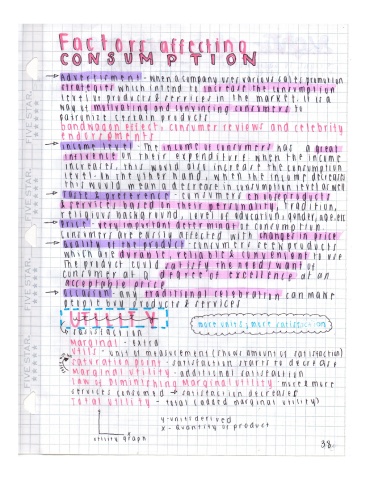 Factors affecting
CONSUMPTION
→ Advertisement - when a company uses various sales promotion
strategies which intend to increase the consumption
level of products & services in the market. It is a
way of motivating and convincing consumers to
patronize certain products
bandwagon effect, consumer reviews and celebrity
endorsements
→ Income level - The income of consumers has a great
influence on their expenditure. When the income
increases, this would also increase the consumption
level. On the other hand, when the income decreases
this would mean a decrease in consumption level as well
→ Taste & preference - consumers choose products
& services based on their personality, tradition,
religious background, level of education, gender, age, etc.
→ Price - very important determiner of consumption.
Consumers are easily affected with changes in price
→ Quality of the product - consumers seek products
which are durable, reliable & convenient to use
The product could satisfy the needs/want of
consumer at a degree of excellence at an
acceptable price
→ Occasion - any traditional celebration can make
people buy products & services
UTILITY
more units, more satisfaction
satisfaction
Marginal - extra
Utils - unit of measurement (shows amount of satisfaction)
Saturation point - satisfaction starts to decrease
Marginal Utility - additional satisfaction
Law of Diminishing Marginal Utility: more & more
services consumed → satisfaction decreases
Total Utility - total (added marginal utility)
Y
X
Y - units derived
X - Quantity of product
utility graph
38
FIVE STAR.
FIVE STAR.
FIVE STAR.
FIVE STAR.